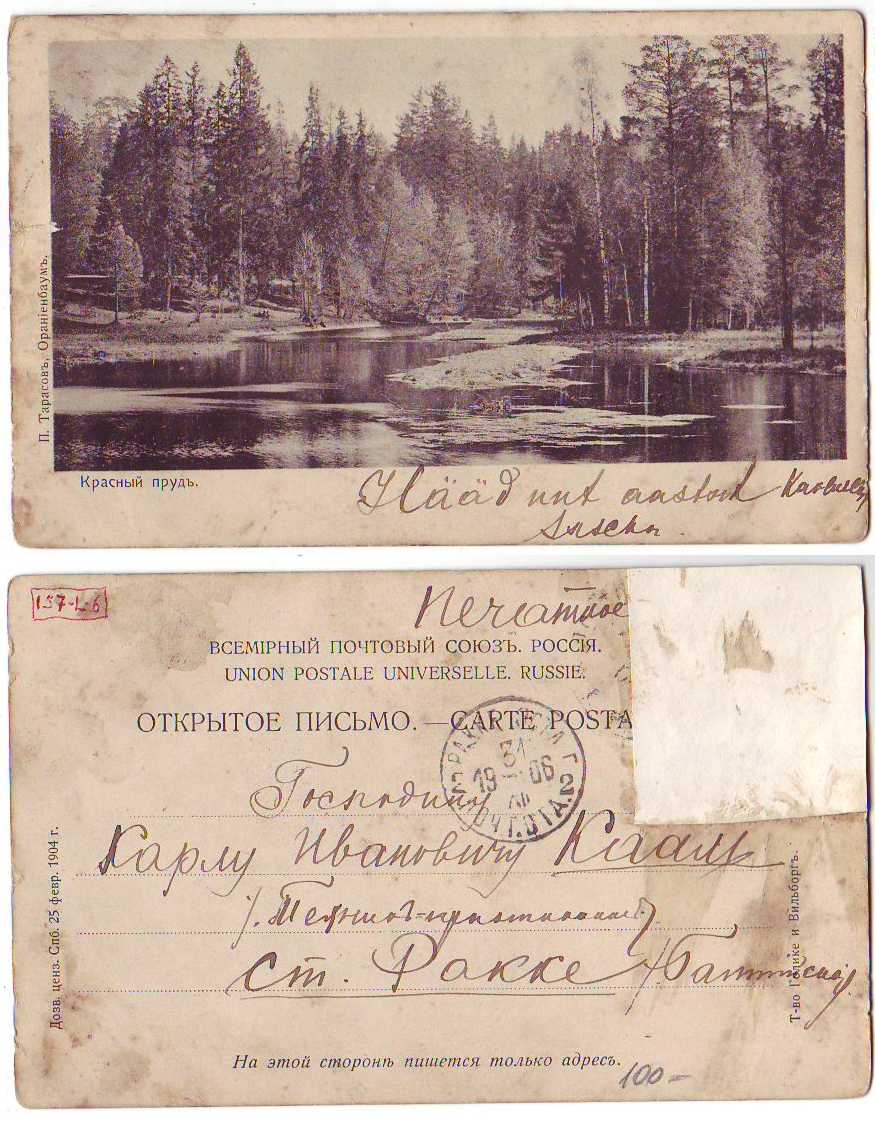 П. Тарасовъ, Ораніенбаумъ.
Красный прудъ.
Hääd uut aastat
157-L-6
Печатное
ВСЕМІРНЫЙ ПОЧТОВЫЙ СОЮЗЪ. РОССІЯ.
UNION POSTALE UNIVERSELLE. RUSSIE.
ОТКРЫТОЕ ПИСЬМО. — CARTE POSTA
31
19 06
ПОЧТ. ОТД.
Господину
Карлу Ивановичу Кааль
ст. Ракке /Балтійской/.
Дозв. ценз. Спб. 25 февр. 1904 г.
Т-во Голике и Вильборгъ.
На этой сторонѣ пишется только адресъ.
100-